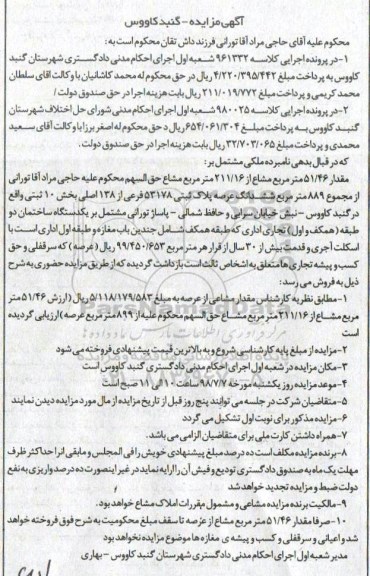 آگهی مزایده - گنبد کاووس
محکوم علیه آقای حاجی مراد آقا تورانی فرزند داش تقان محکوم است به :
۱-در پرونده اجرایی کلاسه ۹۶۱۳۳۲ شعبه اول اجرای احکام مدنی دادگستری شهرستان گنبد
کاووس به پرداخت مبلغ ۴/۲۲۰/۳۹۵/۴۴۲ ریال در حق محکوم له محمد کاشانیان با وکالت اقای سلطان
محمد کریمی و پرداخت مبلغ ۲۱۱/۰۱۹/۷۷۲ ریال بابت هزینه اجرا در حق صندوق دولت /
۲-در پرونده اجرایی کلاسه ۹۸۰۰۲۵ شعبه اول اجرای احکام مدنی شورای حل اختلاف شهرستان
گنبد کاووس به پرداخت مبلغ ۶۵۴/۰۶۱/۳۰۴ ریال د حق محکوم له اصغر برزا با وکالت آقای سعید
محمدی و پرداخت مبلغ ۳۲/۷۰۳/۰۶۵ ریال بابت هزینه اجرا در حق صندوق دولت.
که در قبال بدهی نامبرده ملکی مشتمل بر:
مقدار ۵۱/۴۶ متر مربع مشاع از ۲۱۱/۱۶ متر مربع مشاع حق السهم محکوم علیه حاجی مراد آقا تورانی
از مجموع ۸۸۹ متر مربع ششدانگ عرصه پلاک ثبتی ۵۳۱۷۸ فرعی از ۱۳۸ اصلی بخش ۱۰ ثبتی واقع
در گنبد کاووس - نبش خیابان میرابی و حافظ شمالی - پاساژ تورانی مشتمل بر یکدستگاه ساختمان دو
طبقه (همکف و اول) تجاری اداری که طبقه همکف شامل چندین باب مغازه و طبقه اول اداری است با
اسکلت آجری و قدمت بیش از ۳۰ سال از قرار هر متر مربع ۹۹/۴۵۰/۶۵۳ ریال (عرصه ) که سرقفلی و حق
کسب و پیشه تجاری ها متعلق به اشخاص ثالث است بازداشت گردیده که از طریق مزایده حضوری به شرح
ذیل به فروش می رسد:
۱-مطابق نظریه کارشناس مقدار مشاعی از عرصه به مبلغ ۵/۱۱۸/۱۷۹/۵۸۳ ریال (ارزش ۵۱/۴۶ متر
مربع مشاع از ۲۱۱/۱۶ متر مربع مشاع حق السهم محکوم علیه از ۸۹۹ متر مربع عرصه) ارزیابی گردیده
است
۲-مزایده از مبلغ پایه کارشناسی شروع و به بالاترین قیمت پیشنهادی فروخته می شود
۳-مکان مزایده در شعبه اول اجرای احکام مدنی دادگستری گنبد کاووس است
۴-موعد مزایده روز یکشنبه مورخه ۹۸/۷/۷ ساعت ۱۰ الی ۱۱ صبح است
۵-متقاضیان شرکت در جلسه می توانند پنج روز قبل از تاریخ مزایده از مال مورد مزایده دیدن نمایند
۶-مزایده مذکور برای نوبت اول تشکیل می گردد
۷-همراه داشتن کارت ملی برای متقاضیان الزامی می باشد.
۸-برنده مزایده مکلف است ده درصد مبلغ پیشنهادی خویش را فی المجلس و مابقی انرا حداکثر ظرف
مهلت یک ماه به صندوق دادگستری تودیع و فیش آن را ارایه نماید در غیر اینصورت ده درصد واریزی به نفع
دولت ضبط و مزایده تجدید خواهد شد
۹-مالکیت برنده مزایده مشاعی و مشمول مقررات املاک مشاع خواهد بود.
۱۰-صرفا مقدار ۵۱/۴۶ متر مربع مشاع از عرصه تا سقف مبلغ محکومیت به شرح فوق فروخته خواهد
شد و اعیانی و سرقفلی و کسب و پیشه ی مغازه ها موضوع مزایده نخواهد بود
مدیر شعبه اول اجرای احکام مدنی دادگستری شهرستان گنبد کاووس - بهاری